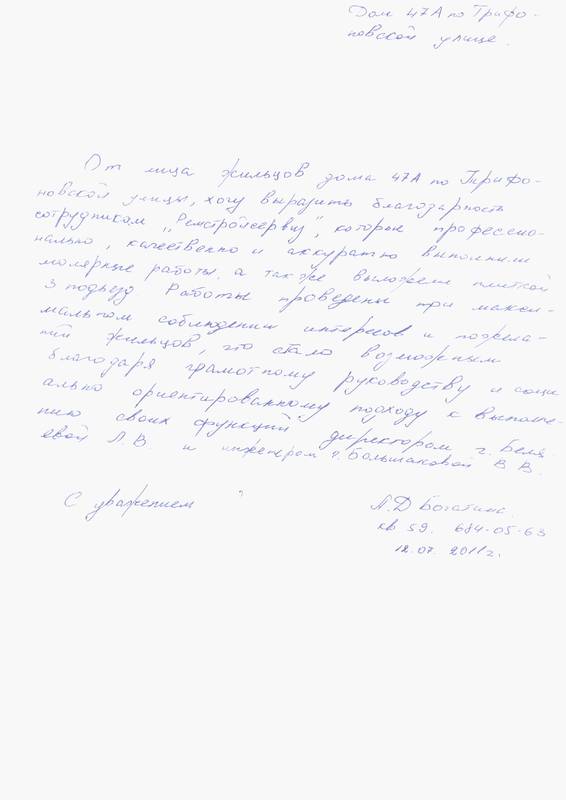 Дом 47А по Трифо-
новской улице.
От лица жильцов дома 47А по Трифо-
новской улицы, хочу выразить благодарность
сотрудникам „Ремстройсервиу", которые профессио-
нально, качественно и аккуратно выполнили
малярные работы, а также выложили плиткой
3 подъезд Работы проведены при макси-
мальном соблюдении интересов и пожела-
ний жильцов, это стало возможным
благодаря грамотному руководству и соци
ально ориентированному подходу к выполне-
нию своих функций директором г. Беля
евой Л. В. и инженером г. Большаковой В. В.
С уважением
Л.Д
кв. 59. 684-05-63
12.07. 2011г.